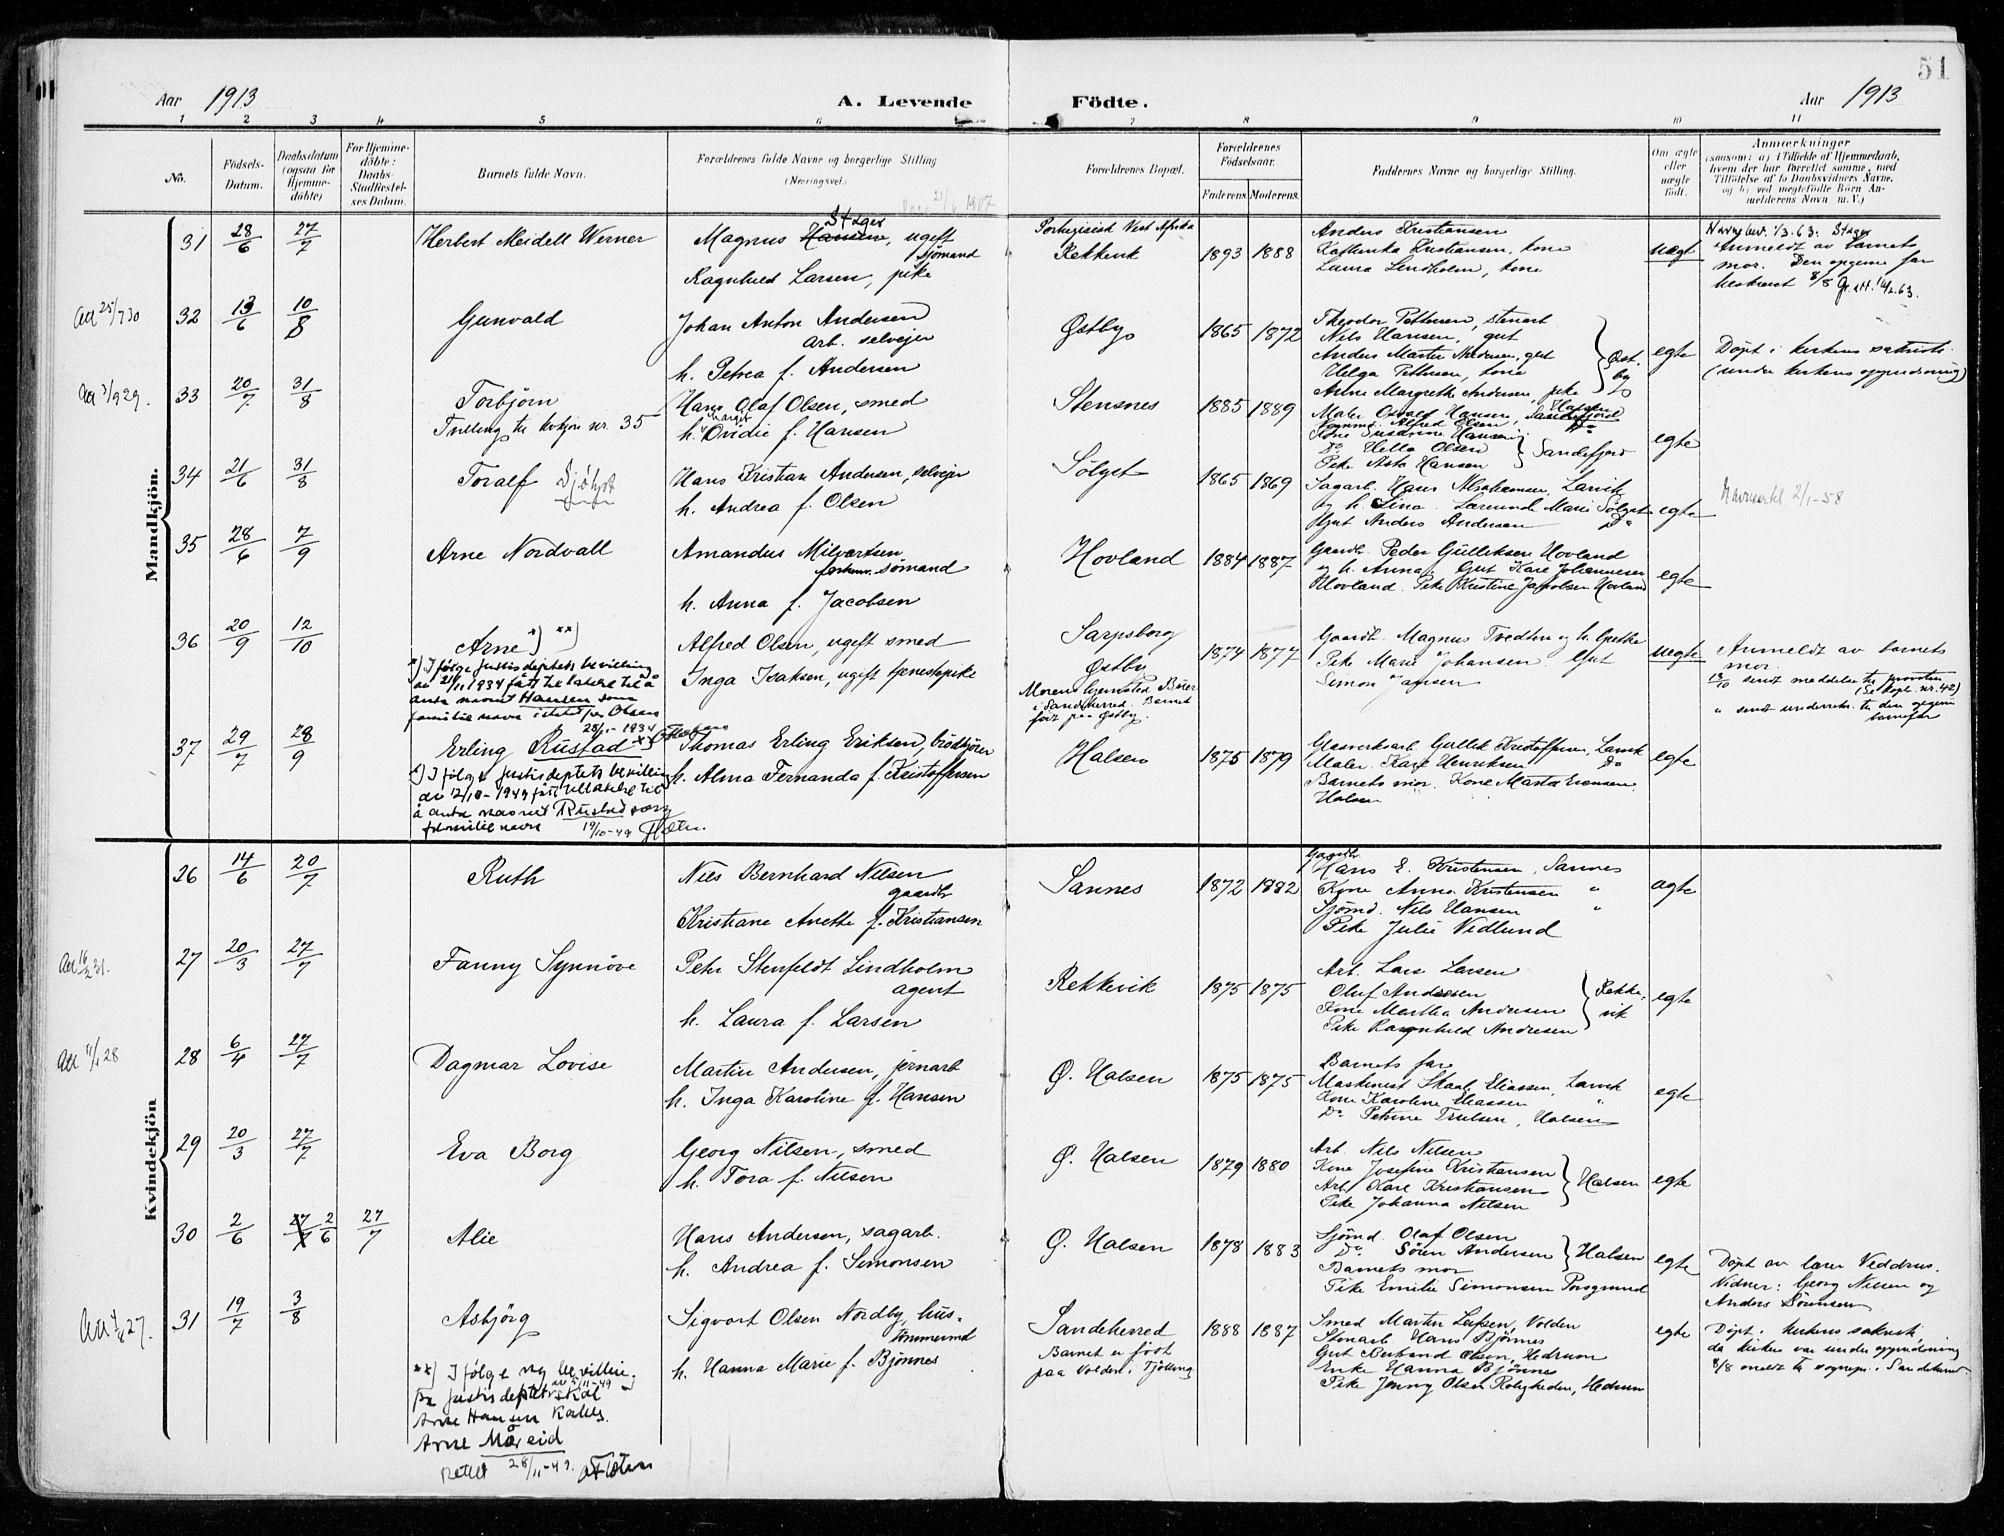 51
Aar 1913
A. Levende
Födte.
Aar 1913
1 2 3 4 5 6 7 8 9 10 11
No.
Födsels-Datum.
Daabsdatum (ogsaa for Hjemmedöbte)
For Hjemmedöbte: Daabs-Stadfæstelses Datum.
Barnets fulde Navn.
Forældrenes fulde Navne og borgerlige Stilling (Næringsvei.)
Forældrenes Bopæl.
Forældrenes Födselsaar.
Faderens. Moderens.
Faddernes Navne og borgerlige Stilling.
Om ægte eller uægte födt.
Anmærkninger
(saasom: a) i Tilfælde af Hjemmedaab,
hvem der har forrettet samme, med
Tilföielse af to Daabsvidners Navne,
og b) ved uægtefödte Börn Anmelderens Navn m. V.)
Mandkjön.
31 28/6 27/7 Herbert Meidell Werner
Stager
Magnus Hansen, ugift
sjömand
Ragnhild Larsen, pike
Portugisisk Vest Afrika
Rekkevik
1893 1888
Anders Kristiansen
Kathinka Kristiansen, kone
Laura Lindholm, kone
uægt
Navnebev. 1/3.63. Stager
Anmeldt av barnets
mor. Den opgivne far
32 13/6 10/8 Gunvald
Johan Anton Andersen
arb. selveier
h. Petrea f. Andersen
Östby
1865 1872
Theodor Pettersen, stenarb
Nils Hansen, gut
Anders Martin Andersen, gut
Helga Pettersen, kone
Anne Margrethe Andersen, pike
Östby
egte
Döpt i kirkens sakristi
(under kirkens oppudsning)
33 20/7 31/8 Torbjörn
Tvilling til kvkjön nr. 35
Hans Olaf Olsen, smed
h. Ovidie f. Hansen
Stensnes
1885 1889
Maler Osvald Hansen,
Alfred Olsen,
Kone Susanne Hansen
Do Hella Olsen
Pike Asta Hansen
Sandefjord
egte
34 21/6 31/8 Toralf
Hans Kristian Andersen, selveier
h. Andrea f. Olsen
Sölyst
1865 1869
Sagarb. Hans Abrahamsen, Larvik
og h. Lina.
Gut Anders Andersen Do
egte
2/1-58
35 28/6 7/9 Arne Nordvall
Amandus Milvertsen
sömand
h. Anna f. Jacobsen
Hovland
1884 1887
Gaardb. Peder Gulliksen Hovland
og h. Anna. Gut Kare Johannesen
Hovland. Pike Kristine Jacobsen Hovland
egte
36 20/9 12/10 Arne *) **)
*) Ifölge Justisdeptets bevilling
av 21/11 1934 fått tillatelse til å
anta navnet Hansen som
familienavn istetfor Olsen
28/11-1934
Alfred Olsen, ugift smed
Inga Isaksen, ugift tjenestepike
Sarpsborg
Östby
Morens hjemsted Buer
i Sandeherred. Barnet
födt paa Östby.
1874 1877
Gaardb. Magnus Tvedten og h.
Pike Marie Johansen. Gut
Simon Jansen
uegte
Anmeldt av barnets
mor.
13/10 sendt meddelelse til provsten
(Se kopi. nr. 42)
" sendt underretn. til den opgivne
barnefar
37 29/7 28/9 Erling Rustad
*) Ifölge Justisdeptets bevilling
av 12/10-1949 fått tillatelse til
å anta navnet Rustad som
familienavn 19/10-49
Thomas Erling Eriksen, brödkjörer
h. Alma Fernanda f. Kristoffersen
Halsen
1875 1879
Glasverksarb. Gullik Kristoffersen, Larvik
Maler. Karl Henriksen Do
Barnets mor. Kone Marta
Halsen
egte
Kvindekjön
26 14/6 20/7 Ruth
Nils Bernhard Nilsen
gaardb
Kristiane Anette f. Kristiansen
Sannes
1872 1882
Gaardb
Hans E. Kristensen, Sannes
Kone Anna Kristensen "
Sjömd. Nils Hansen "
Pike Julie Vidlund
ægte
27 20/3 27/7 Fanny Synnöve
Petr Stenfeldt Lindholm
agent
h. Laura f. Larsen
Rekkevik
1875 1875
Arb. Lars Larsen
Oluf Andersen
Kone Martha Andersen
Pike Ragnhild Andresen
Rekkevik
egte
28 6/4 27/7 Dagmar Lovise
Martin Andersen, jernarb
h. Inga Karoline f. Hansen
Ö. Halsen
1875 1875
Barnets far
Maskinist Skaal Eliassen, Larvik
Kone Karoline Eliassen "
Do Petrine Trulsen, Halsen
egte
29 20/3 27/7 Eva Borg
Georg Nilsen, smed
h. Tora f. Nilsen
Ö. Halsen
1879 1880
Arb. Nils Nilsen
Kone Josefine Kristiansen
Arb. Karl Kristiansen
Pike Johanna Nilsen
Halsen
egte
30 2/6 27/7 2/6 27/7 Alie
Hans Andersen, sagarb.
h. Andrea f. Simonsen
Ö. Halsen
1878 1883
Sjömd. Olaf Olsen
Do. Sören Andersen
Barnets mor
Pike Emilie Simonsen Porsgrund
Halsen
egte
Döpt av lærer Veddrus.
Vidner: Georg Nilsen og
Anders Sörensen
31 19/7 3/8 Asbjörg
Sigvart Olsen Nordby, hus-
tömmermd
h. Hanna Marie f. Bjönnes
Sandeherred
Barnet er födt
paa Volden i Tjölling
1888 1887
Smed Martin Larsen, Volden
Stenarb. Hans Bjönnes
Gut Bertrand Olsen, Hedrum
Enke Hanna Bjönnes
Pike Jenny Olsen Roligheden, Hedrum
egte
Döpt i kirkens sakristi,
da kirken var under oppudsning
8/8 meldt til sognepr. i Sandeherred.
**) Ifölge ny bevilling
fra Justisdeptet av 5/11-49 skal
Arne Hansen kalles
Arne Måreid
Rettet 28/11-49.